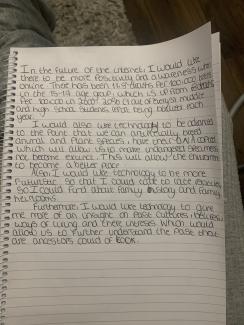 In the future of the internet, I would like
there to be more positivity and awareness
online. There has been 11.8 deaths Per 100,000 teens
in the 15-19 age group, which is up from
Per 100,000 in 2007. 20% (1 out of every 5) middle
and high school students what being bullied each
year.
I would also like technology to be advanced
to the point that we can artificially breed
animal and Plant species, have their DNA copied
which will allow us to make endangered species
not become extinct. This will allow the enviroment
to become a better place
Also, I would like technology to be more
futuristic so that I could
so I could find about family history and family
heirlooms.
Furthermore, I would like technology to give
me more of an insight on past cultures, beliefs,
ways of living and there intreses which would
allow us to further understand the past that
are ancestors could of took.